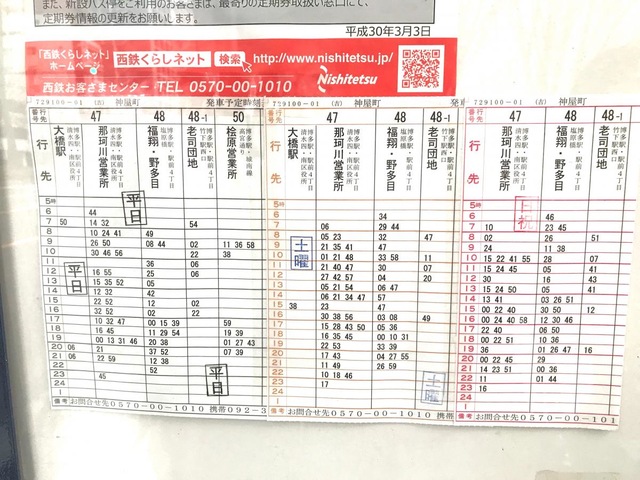 また、新設バス停をご利用のお客さまは、最寄りの定期券取扱い窓口にて、
定期券情報の更新をお願いします。
平成30年3月3日
「西鉄くらしネット」
ホームページ
西鉄くらしネット 検索 http://www.nishitetsu.jp/
西鉄お客さまセンター TEL 0570-00-1010
Nishitetsu
729100-01 (吉) 神屋町 発車予定時刻
番行号先 47 48 48-1 50
行先
大橋駅
那珂川営業所
福翔・野多目
老司団地
桧原営業所
平日
5時
6 44
7 50 14 32 54
8 10 24 41 49
9 26 50 08 44 02 11 36 58
10 30 46 56 22 38
11 36 06
12 16 55 25 06
13 15 35 52 05
14 12 32 42
15 22 52 12 02
16 12 22 02
17 10 32 47 00 15 39 59
18 16 45 11 29 54 19 39
19 00 13 31 46 20 38 01 27 43
20 06 21 37 52 07 39
21 06 22 59 12 38
22 52
23 45
24
1
平日
平日
備考 お問合せ先0570-00-1010 携帯092-3
729100-01 (吉) 神屋町
47 48 48-1
行先
大橋駅
那珂川営業所
福翔・野多目
老司団地
5時
6 34
7 06 29 44
8 05 23 32 47
9 21 35 41 47
10 01 21 48 33 58 11
11 21 40 47 30 07
12 27 42 57 04 20
13 05 21 54 06 47
14 06 21 34 47 57
15 38 23 47
16 30 38 56 03 08 49
17 15 28 43 50 05 36
18 16 35 45 00 10 31
19 22 53 33 39
20 17 43 04 27 55
21 11 49 26 59
22 10 18 46
23 17
24
1
土曜
土曜
備考 お問合せ先0570-00-1010 携帯
729100-01 (吉) 神屋町
47 48 48-1
行先
那珂川営業所
福翔・野多目
老司団地
日祝
5時
6 46
7 10 23 45
8 02 26 51
9 24 11 38
10 15 22 41 55 28 07
11 15 24 45 05 41
12 30 16 43
13 15 24 50 05 41
14 13 41 03 26 51
15 00 22 40 30 50 12
16 00 24 40 58 12 30 46
17 22 40 06 50
18 00 22 31 00 38
19 36 01 26 47 16
20 00 22 45 29
21 14 23 51 00 36
22 11 01 44
23 16
24
1
備考 お問合せ先0570-00-101